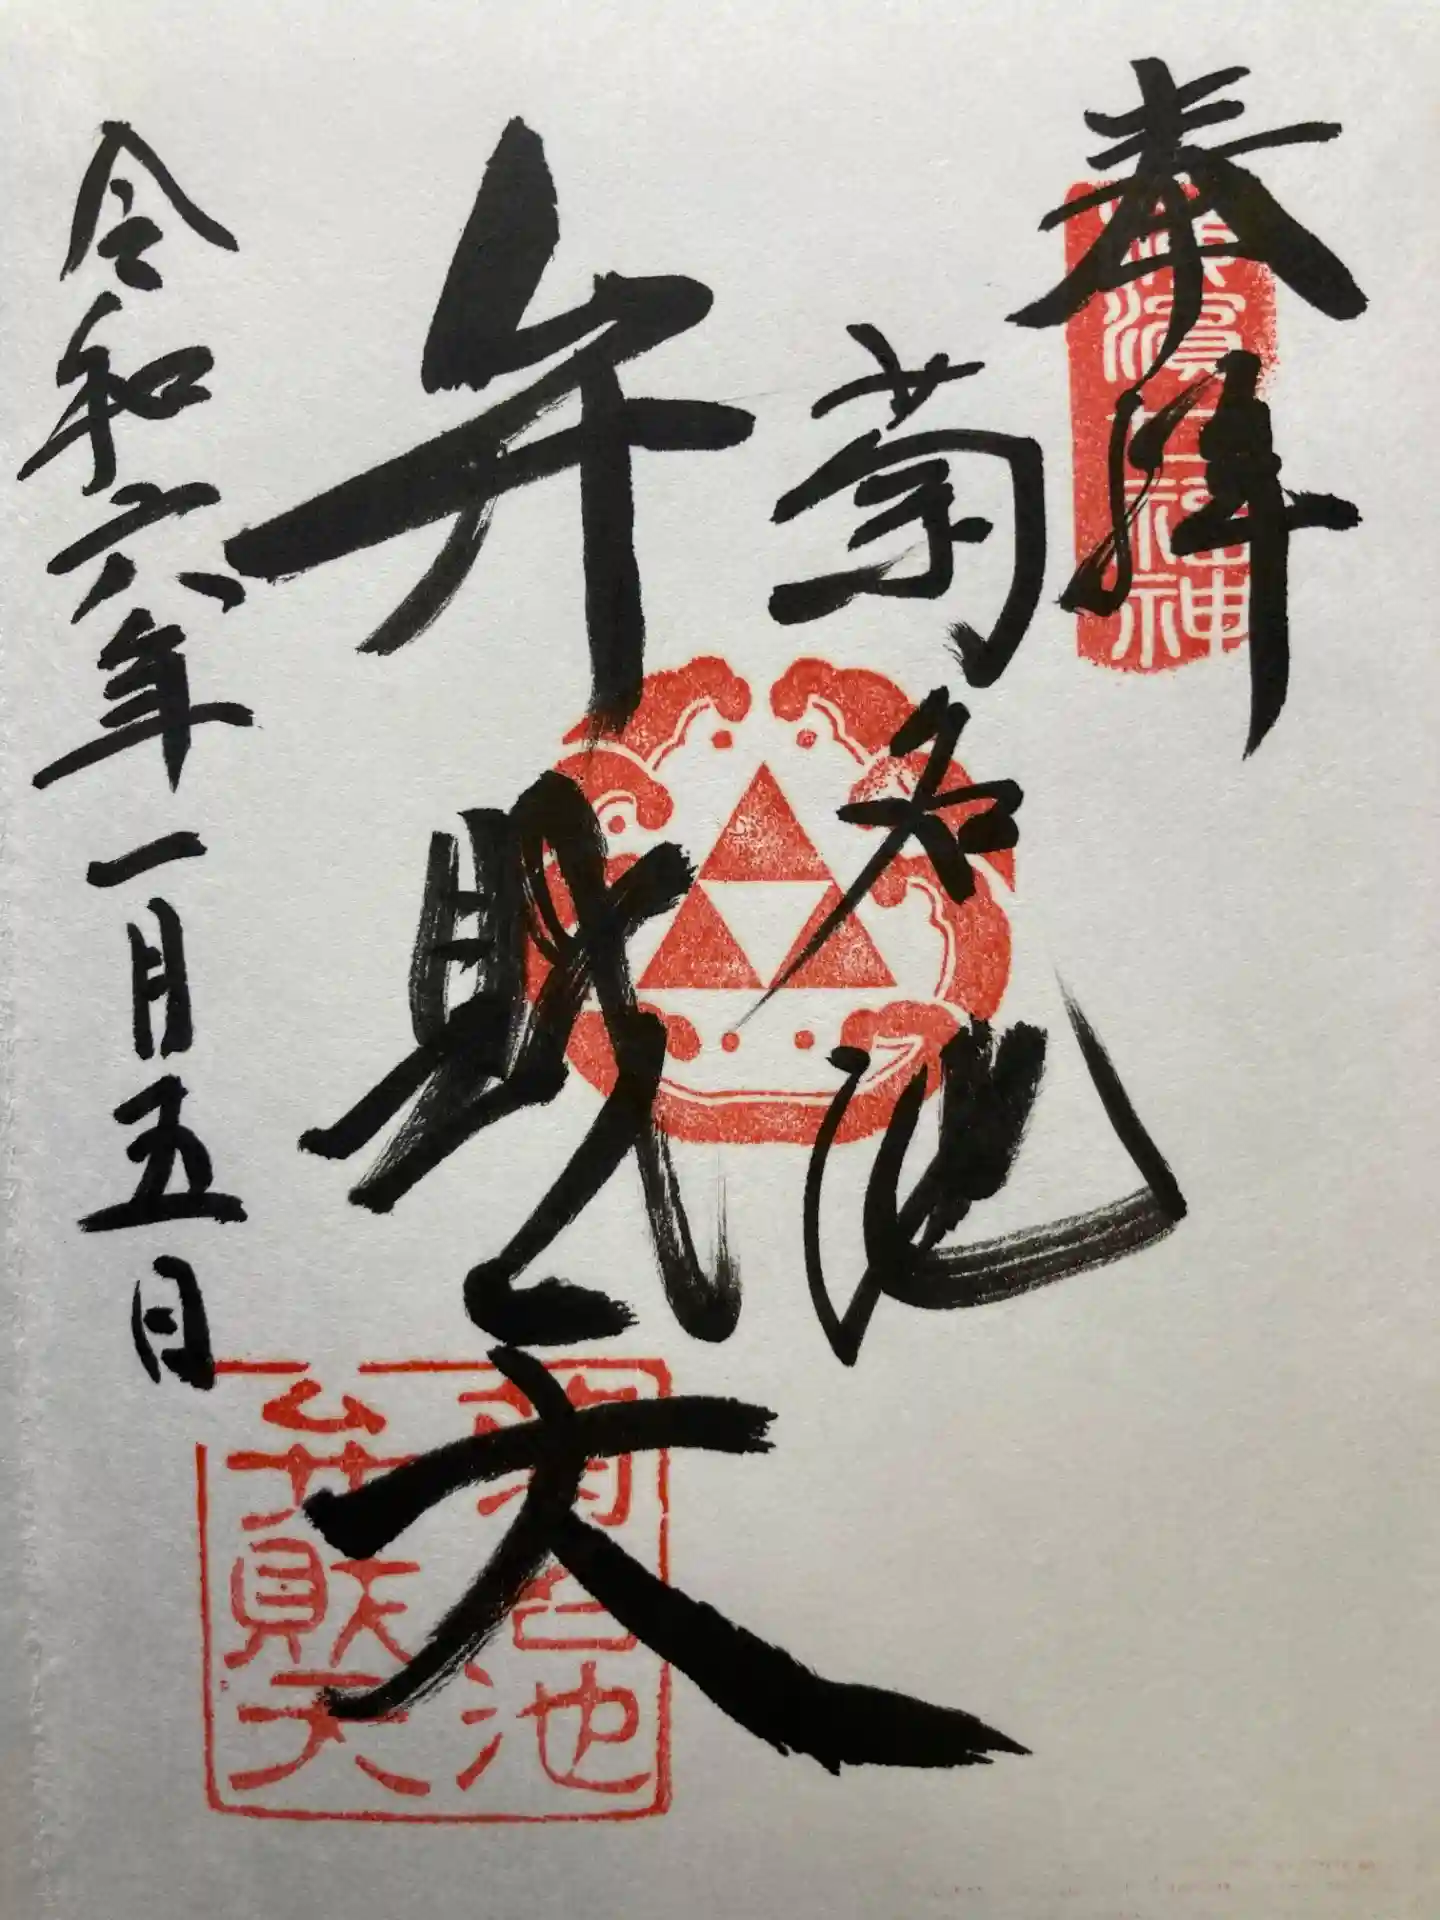 奉拝
横濱七福神
菊名池
弁財天
令和六年一月五日
菊名池
弁財天